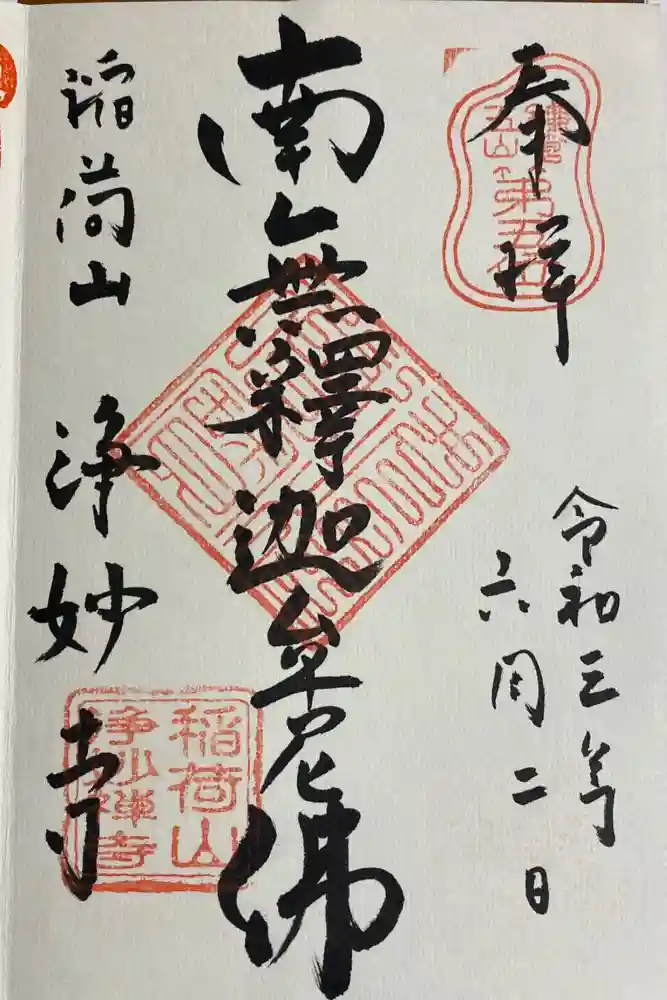 奉拝
鎌倉
五山
第五位
令和三年
六月二日
南無釋迦牟尼佛
稲荷山 浄妙寺
稲荷山
浄妙禅寺